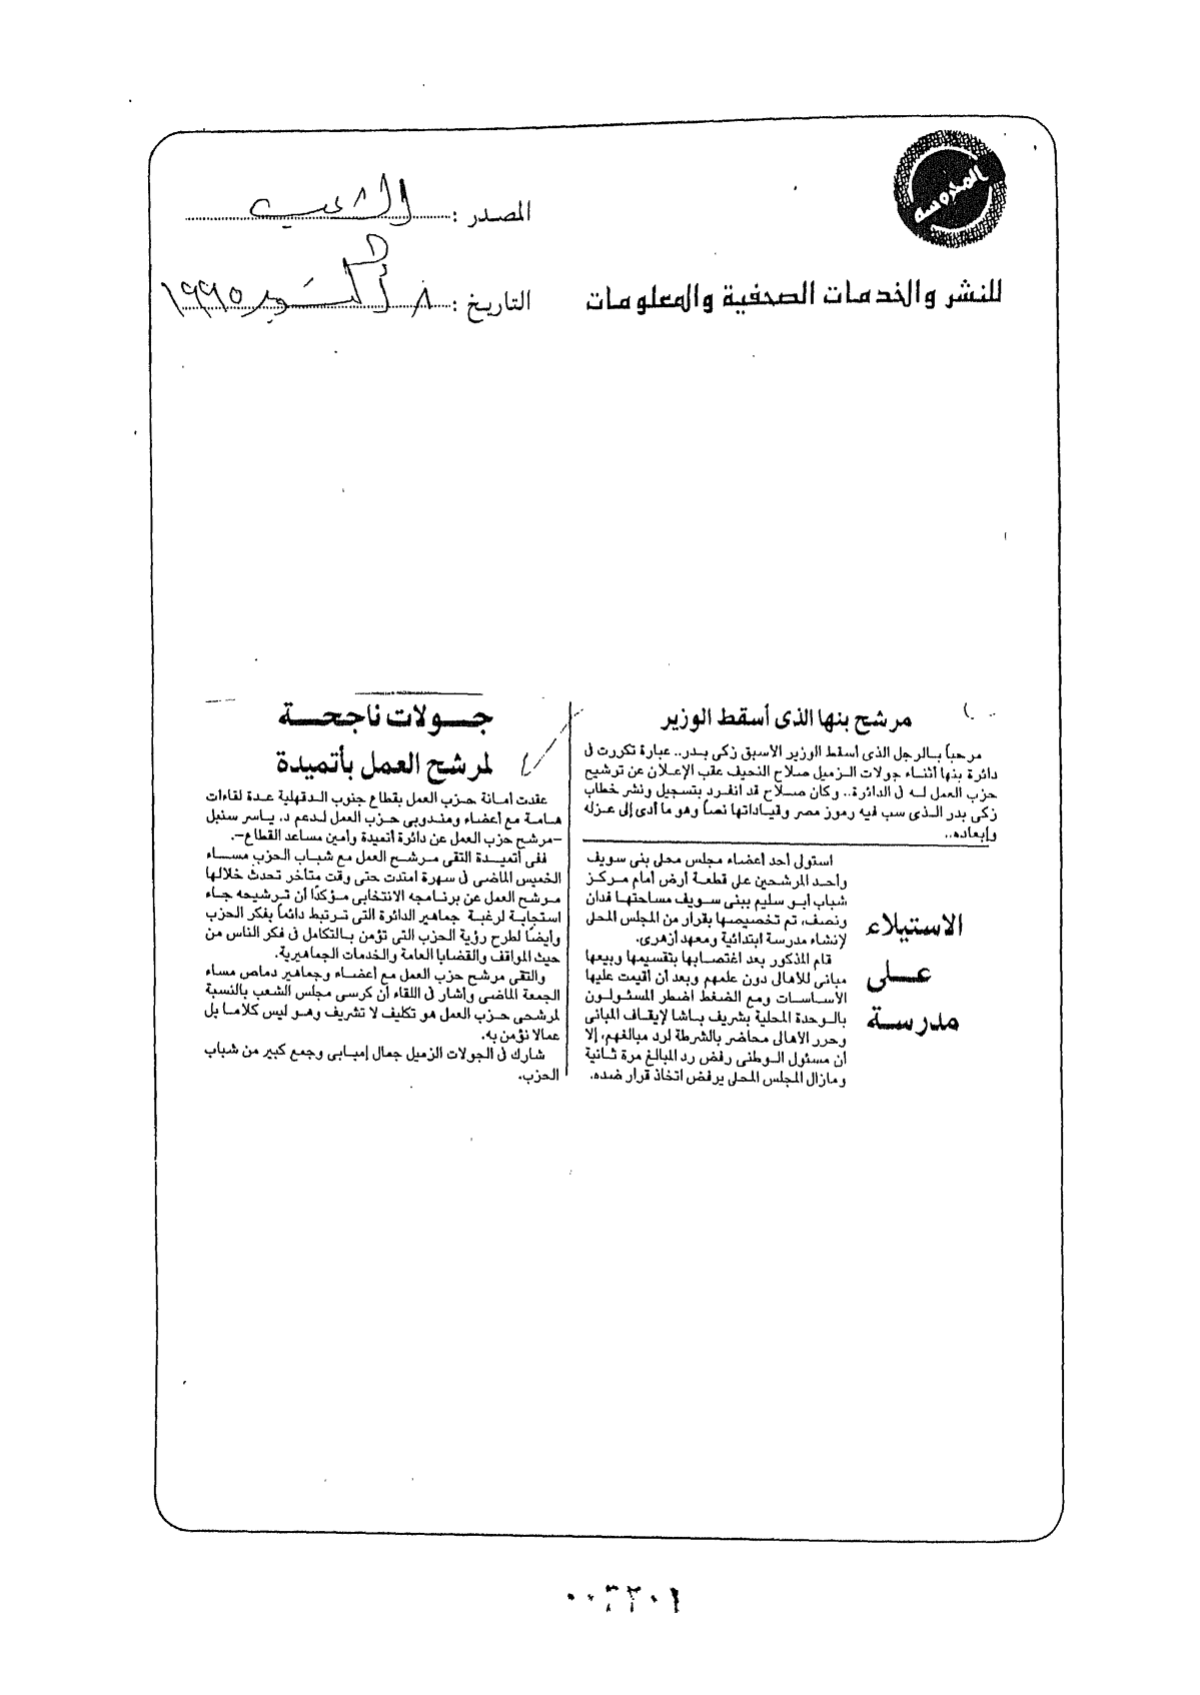 المحروسة
المصدر : الشعب
للنشر والخدمات الصحفية والمعلومات
التاريخ : أكتوبر ١٩٩٥
مرشح بنها الذى أسقط الوزير
مرحباً بالرجل الذى أسقط الوزير الأسبق زكى بدر.. عبارة تكررت فى
دائرة بنها أثناء جولات الزميل صلاح النحيف عقب الإعلان عن ترشيح
حزب العمل له فى الدائرة.. وكان صلاح قد انفرد بتسجيل ونشر خطاب
زكى بدر الذى سب فيه رموز مصر وقياداتها نصاً وهو ما أدى إلى عزله
وإبعاده..
الاستيلاء
على
مدرسة
استولى أحد أعضاء مجلس محلى بنى سويف
وأحد المرشحين على قطعة أرض أمام مركز
شباب أبو سليم ببنى سويف مساحتها فدان
ونصف، تم تخصيصها بقرار من المجلس المحلى
لإنشاء مدرسة ابتدائية ومعهد أزهرى.
قام المذكور بعد اغتصابها بتقسيمها وبيعها
مبانى للأهالى دون علمهم وبعد أن أقيمت عليها
الأساسات ومع الضغط اضطر المسئولون
بالوحدة المحلية بشريف باشا لإيقاف المبانى
وحرر الأهالى محاضر بالشرطة لرد مبالغهم، إلا
أن مسئول الوطنى رفض رد المبالغ مرة ثانية
ومازال المجلس المحلى يرفض اتخاذ قرار ضده.
جولات ناجحة
لمرشح العمل بأتميدة
عقدت أمانة حزب العمل بقطاع جنوب الدقهلية عدة لقاءات
هامة مع أعضاء ومندوبى حزب العمل لدعم د. ياسر سنبل
–مرشح حزب العمل عن دائرة أتميدة وأمين مساعد القطاع–.
ففى أتميدة التقى مرشح العمل مع شباب الحزب مساء
الخميس الماضى فى سهرة امتدت حتى وقت متأخر تحدث خلالها
مرشح العمل عن برنامجه الانتخابى مؤكدًا أن ترشيحه جاء
استجابة لرغبة جماهير الدائرة التى ترتبط دائماً بفكر الحزب
وأيضًا لطرح رؤية الحزب التى تؤمن بالتكامل فى فكر الناس من
حيث المواقف والقضايا العامة والخدمات الجماهيرية.
والتقى مرشح حزب العمل مع أعضاء وجماهير دماص مساء
الجمعة الماضى وأشار فى اللقاء أن كرسى مجلس الشعب بالنسبة
لمرشحى حزب العمل هو تكليف لا تشريف وهو ليس كلاما بل
عمالا نؤمن به.
شارك فى الجولات الزميل جمال إمبابى وجمع كبير من شباب
الحزب.